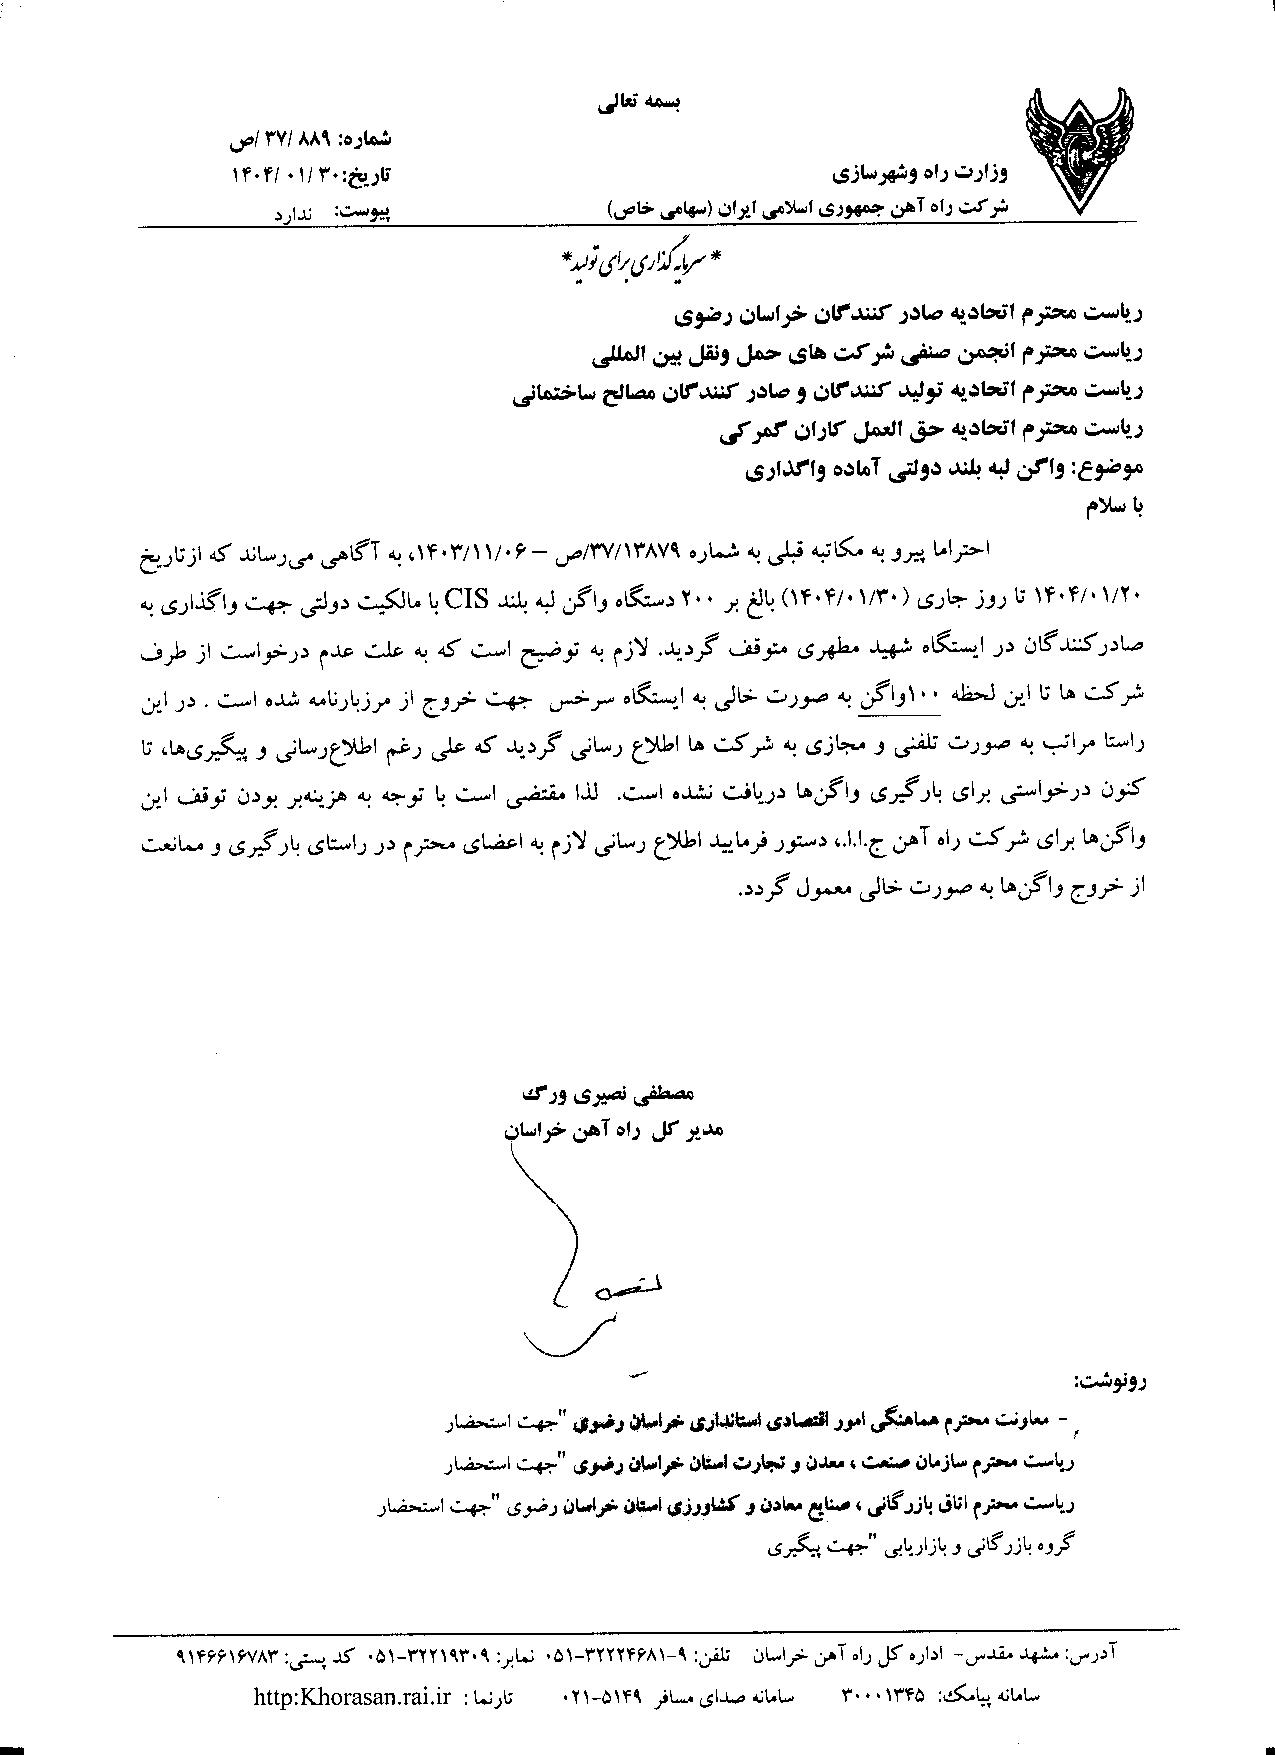 بسمه تعالی
شماره: ۸۸۹ /۳۷ /ص
تاریخ: ۳۰ /۰۱ /۱۴۰۴
پیوست: ندارد
وزارت راه وشهرسازی
شرکت راه آهن جمهوری اسلامی ایران (سهامی خاص)
* سرمایه‌گذاری برای تولید *
ریاست محترم اتحادیه صادر کنندگان خراسان رضوی
ریاست محترم انجمن صنفی شرکت های حمل ونقل بین المللی
ریاست محترم اتحادیه تولید کنندگان و صادر کنندگان مصالح ساختمانی
ریاست محترم اتحادیه حق العمل کاران گمرکی
موضوع: واگن لبه بلند دولتی آماده واگذاری
با سلام
احتراما پیرو به مکاتبه قبلی به شماره ۳۷/۱۳۸۷۹/ص – ۱۴۰۳/۱۱/۰۶، به آگاهی می‌رساند که از تاریخ
۱۴۰۴/۰۱/۲۰ تا روز جاری (۱۴۰۴/۰۱/۳۰) بالغ بر ۲۰۰ دستگاه واگن لبه بلند CIS با مالکیت دولتی جهت واگذاری به
صادرکنندگان در ایستگاه شهید مطهری متوقف گردید. لازم به توضیح است که به علت عدم درخواست از طرف
شرکت ها تا این لحظه ۱۰۰واگن به صورت خالی به ایستگاه سرخس جهت خروج از مرزبارنامه شده است . در این
راستا مراتب به صورت تلفنی و مجازی به شرکت ها اطلاع رسانی گردید که علی رغم اطلاع‌رسانی و پیگیری‌ها، تا
کنون درخواستی برای بارگیری واگن‌ها دریافت نشده است. لذا مقتضی است با توجه به هزینه‌بر بودن توقف این
واگن‌ها برای شرکت راه آهن ج.ا.ا.، دستور فرمایید اطلاع رسانی لازم به اعضای محترم در راستای بارگیری و ممانعت
از خروج واگن‌ها به صورت خالی معمول گردد.
مصطفی نصیری ورگ
مدیر کل راه آهن خراسان
رونوشت:
- معاونت محترم هماهنگی امور اقتصادی استانداری خراسان رضوی "جهت استحضار
ریاست محترم سازمان صنعت ، معدن و تجارت استان خراسان رضوی "جهت استحضار
ریاست محترم اتاق بازرگانی ، صنایع معادن و کشاورزی استان خراسان رضوی "جهت استحضار
گروه بازرگانی و بازاریابی "جهت پیگیری
آدرس: مشهد مقدس- اداره کل راه آهن خراسان تلفن: ۹-۳۲۲۲۴۶۸۱-۰۵۱ نمابر: ۳۲۲۱۹۳۰۹-۰۵۱ کد پستی: ۹۱۴۶۶۱۶۷۸۳
سامانه پیامک: ۳۰۰۰۱۳۴۵ سامانه صدای مسافر ۵۱۴۹-۰۲۱ تارنما : http:Khorasan.rai.ir